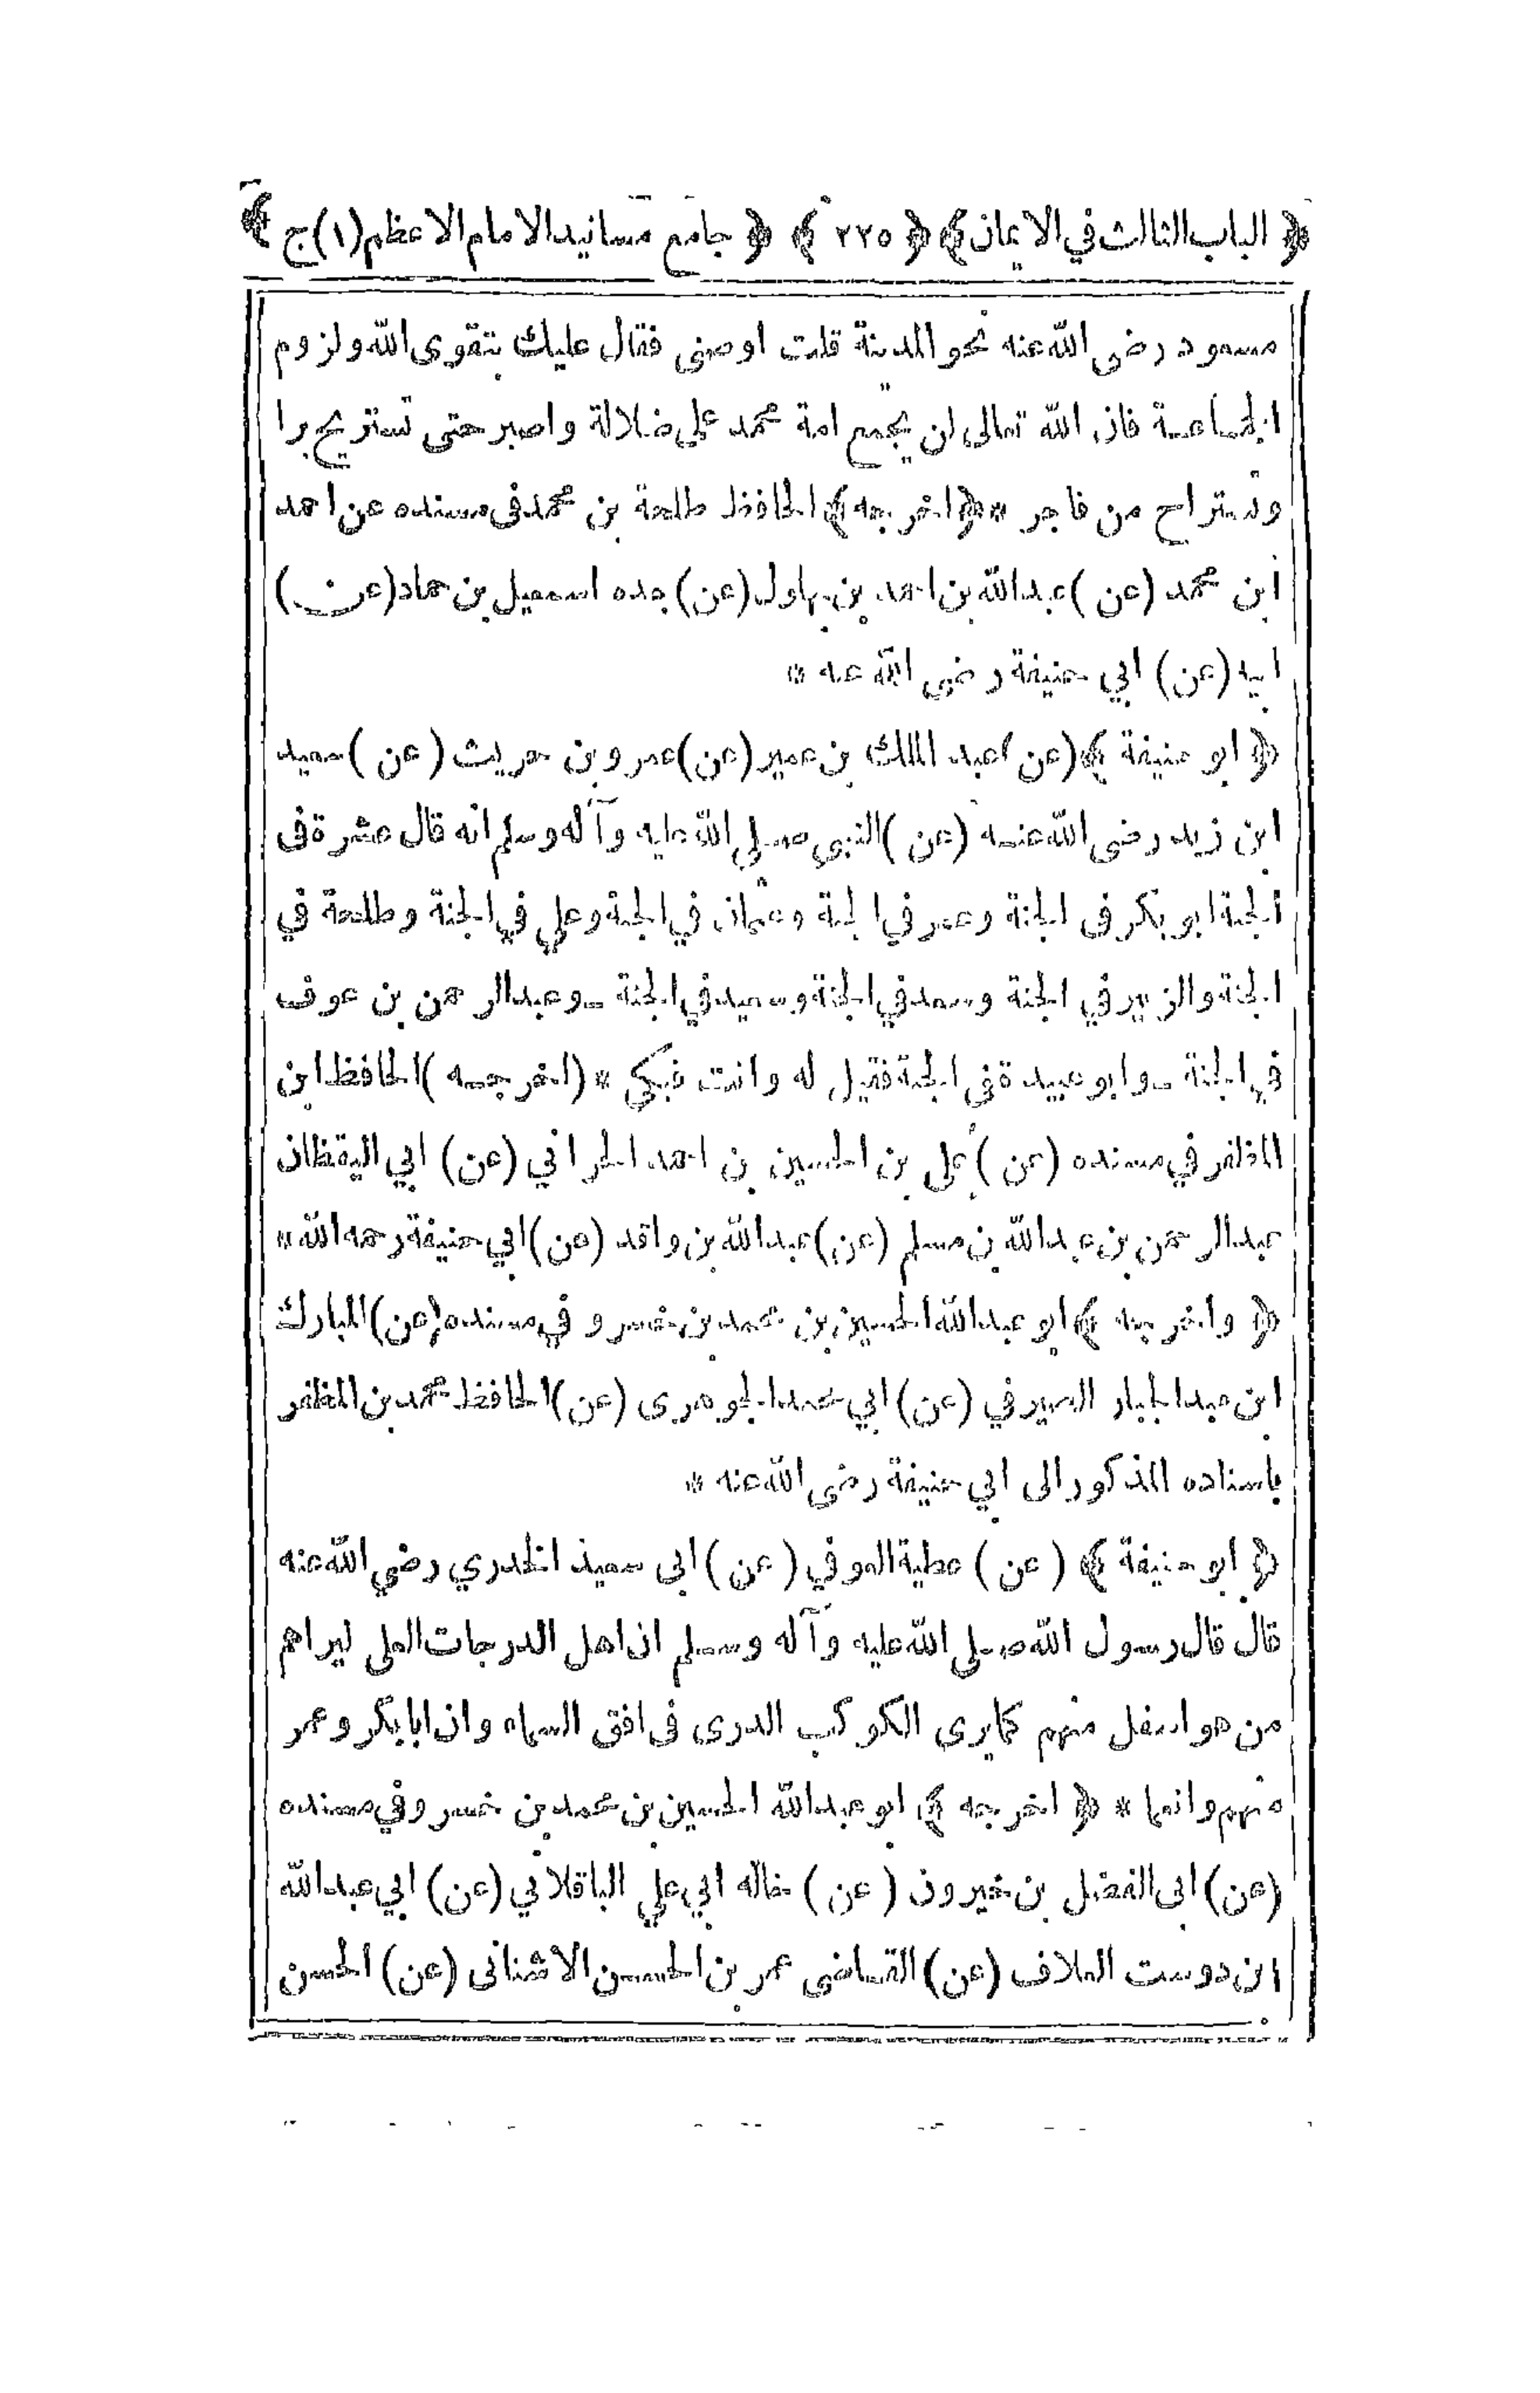 ﴿ الباب الثالث في الايمان ﴾ ﴿ ٢٢٥ ﴾ ﴿ جامع مسانيد الامام الاعظم (١) ج ﴾
مسعود رضى الله عنه نحو المدينة قلت اوصنى فقال عليك بتقوى الله ولزوم
الجماعة فان الله تعالى لن يجمع امة محمد على ضلالة واصبر حتى تستريح برا
وتستراح من فاجر * ﴿ اخرجه ﴾ الحافظ طلحة بن محمد فى مسنده عن احمد
ابن محمد (عن) عبدالله بن احمد بن بهلول (عن) جده اسمعيل بن حماد (عن)
ابيه (عن) ابي حنيفة رضى الله عنه *
﴿ ابو حنيفة ﴾ (عن) عبد الملك بن عمير (عن) عمرو بن حريث (عن) سعيد
ابن زيد رضى الله عنه (عن) النبي صلى الله عليه وآله وسلم انه قال عشرة فى
الجنة ابو بكر فى الجنة وعمر في الجنة وعثمان في الجنة وعلي في الجنة وطلحة في
الجنة والزبير في الجنة وسعد في الجنة وسعيد في الجنة ـ وعبدالرحمن بن عوف
في الجنة ـ وابو عبيدة فى الجنة فقيل له وانت فبكى * (اخرجه) الحافظ ابن
المظفر في مسنده (عن) علي بن الحسين بن احمد الحراني (عن) ابي اليقظان
عبدالرحمن بن عبدالله بن مسلم (عن) عبدالله بن واقد (عن) ابي حنيفة رحمه الله *
﴿ واخرجه ﴾ ابو عبدالله الحسين بن محمد بن خسرو في مسنده (عن) المبارك
ابن عبدالجبار الصيرفي (عن) ابي محمد الجوهرى (عن) الحافظ محمد بن المظفر
باسناده المذكور الى ابي حنيفة رضى الله عنه *
﴿ ابو حنيفة ﴾ (عن) عطية العوفي (عن) ابى سعيد الخدري رضي الله عنه
قال قال رسول الله صلى الله عليه وآله وسلم ان اهل الدرجات العلى ليراهم
من هو اسفل منهم كما يرى الكوكب الدرى فى افق السماء وان ابا بكر وعمر
منهم وانعما * ﴿ اخرجه ﴾ ابو عبدالله الحسين بن محمد بن خسرو في مسنده
(عن) ابى الفضل بن خيرون (عن) خاله ابي علي الباقلاني (عن) ابي عبدالله
ابن دوست العلاف (عن) القاضى عمر بن الحسن الاشنانى (عن) الحسن